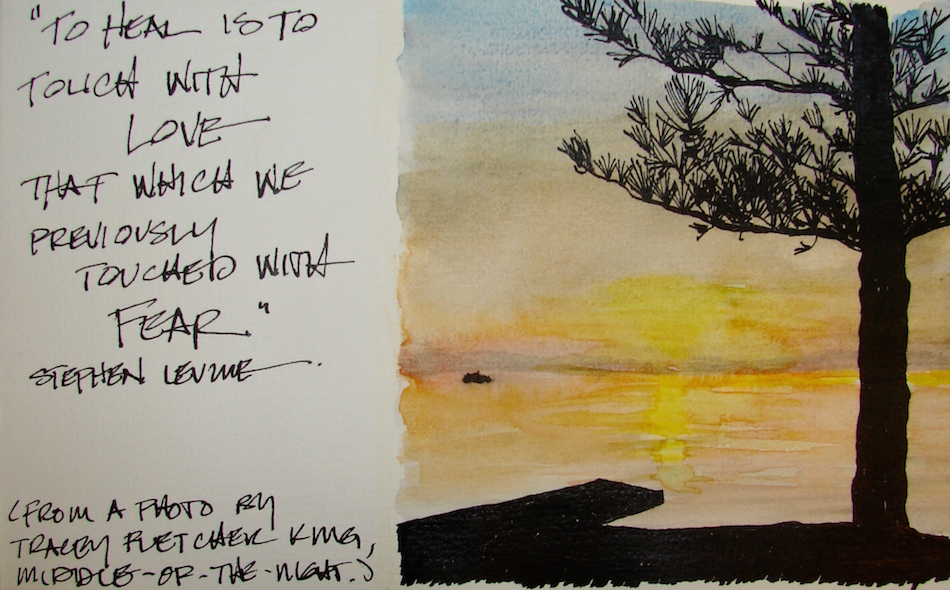 "TO HEAL IS TO
TOUCH WITH
LOVE
THAT WHICH WE
PREVIOUSLY
TOUCHED WITH
FEAR."
STEPHEN LEVINE.
(FROM A PHOTO BY
TRACEY FLETCHER KING,
MIDDLE-OF-THE-NIGHT.)